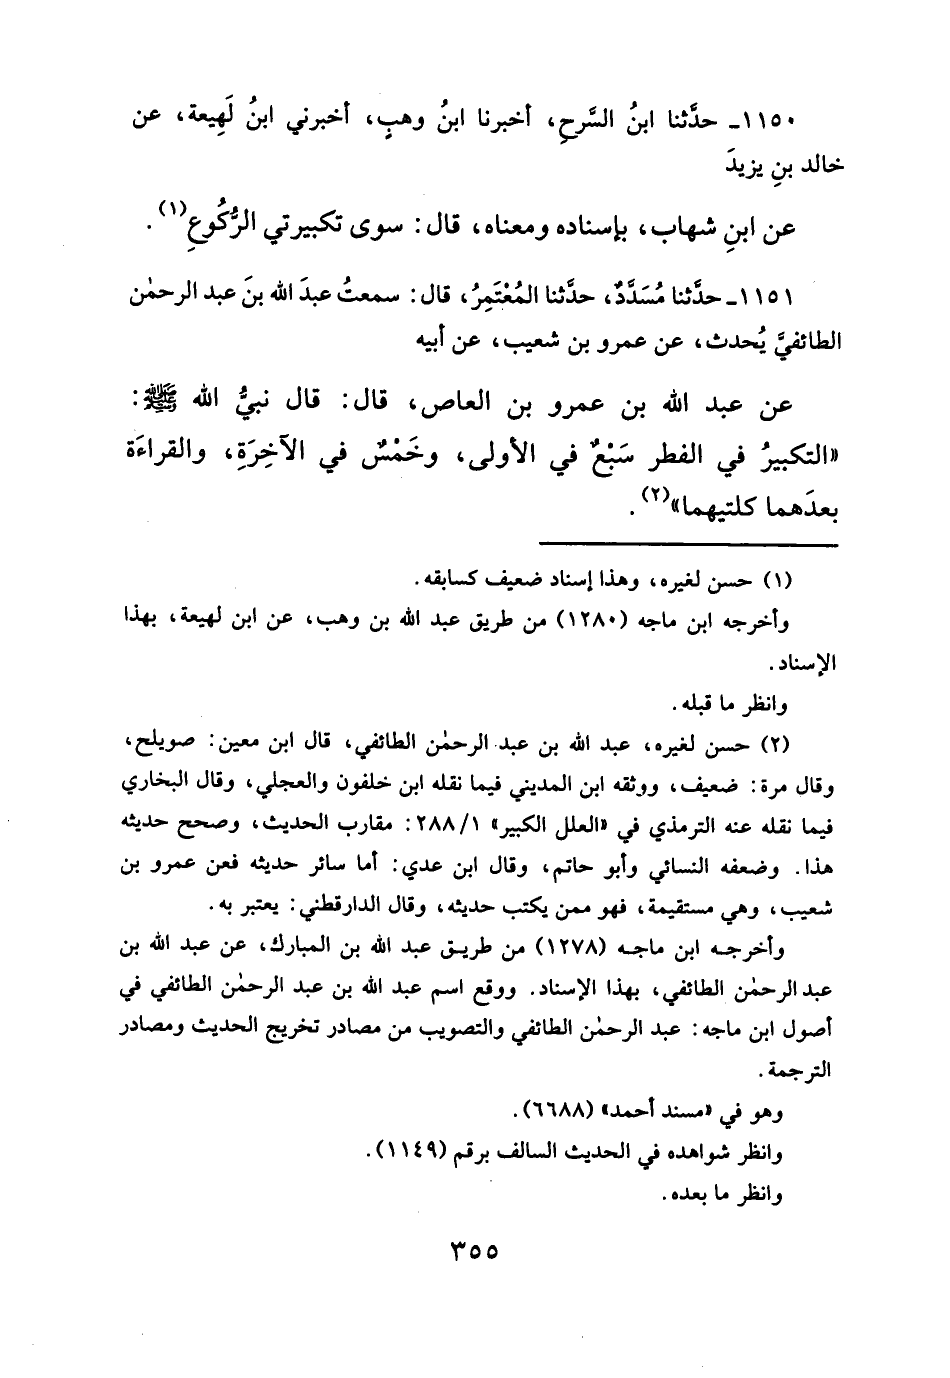 ١١٥٠ـ حدَّثنا ابنُ السَّرحِ، أخبرنا ابنُ وهبٍ، أخبرني ابنُ لَهِيعة، عن
خالد بنِ يزيدَ
عن ابنِ شهاب، بإسناده ومعناه، قال: سوى تكبيرتي الرُّكُوعِ(١).
١١٥١ـ حدَّثنا مُسَدَّدٌ، حدَّثنا المُعْتَمِرُ، قال: سمعتُ عبدَ الله بنَ عبد الرحمٰن
الطائفيَّ يُحدث، عن عمرو بن شعيب، عن أبيه
عن عبد الله بن عمرو بن العاص، قال: قال نبيُّ الله ﷺ:
«التكبيرُ في الفطر سَبْعٌ في الأولى، وخَمْسٌ في الآخِرَةِ، والقراءَة
بعدَهما كلتيهما»(٢).
(١) حسن لغيره، وهذا إسناد ضعيف كسابقه.
وأخرجه ابن ماجه (١٢٨٠) من طريق عبد الله بن وهب، عن ابن لهيعة، بهذا
الإسناد.
وانظر ما قبله.
(٢) حسن لغيره، عبد الله بن عبد الرحمٰن الطائفي، قال ابن معين: صويلح،
وقال مرة: ضعيف، ووثقه ابن المديني فيما نقله ابن خلفون والعجلي، وقال البخاري
فيما نقله عنه الترمذي في «العلل الكبير» ٢٨٨/١: مقارب الحديث، وصحح حديثه
هذا. وضعفه النسائي وأبو حاتم، وقال ابن عدي: أما سائر حديثه فعن عمرو بن
شعيب، وهي مستقيمة، فهو ممن يكتب حديثه، وقال الدارقطني: يعتبر به.
وأخرجه ابن ماجه (١٢٧٨) من طريق عبد الله بن المبارك، عن عبد الله بن
عبد الرحمٰن الطائفي، بهذا الإسناد. ووقع اسم عبد الله بن عبد الرحمٰن الطائفي في
أصول ابن ماجه: عبد الرحمٰن الطائفي والتصويب من مصادر تخريج الحديث ومصادر
الترجمة.
وهو في «مسند أحمد» (٦٦٨٨).
وانظر شواهده في الحديث السالف برقم (١١٤٩).
وانظر ما بعده.
٣٥٥